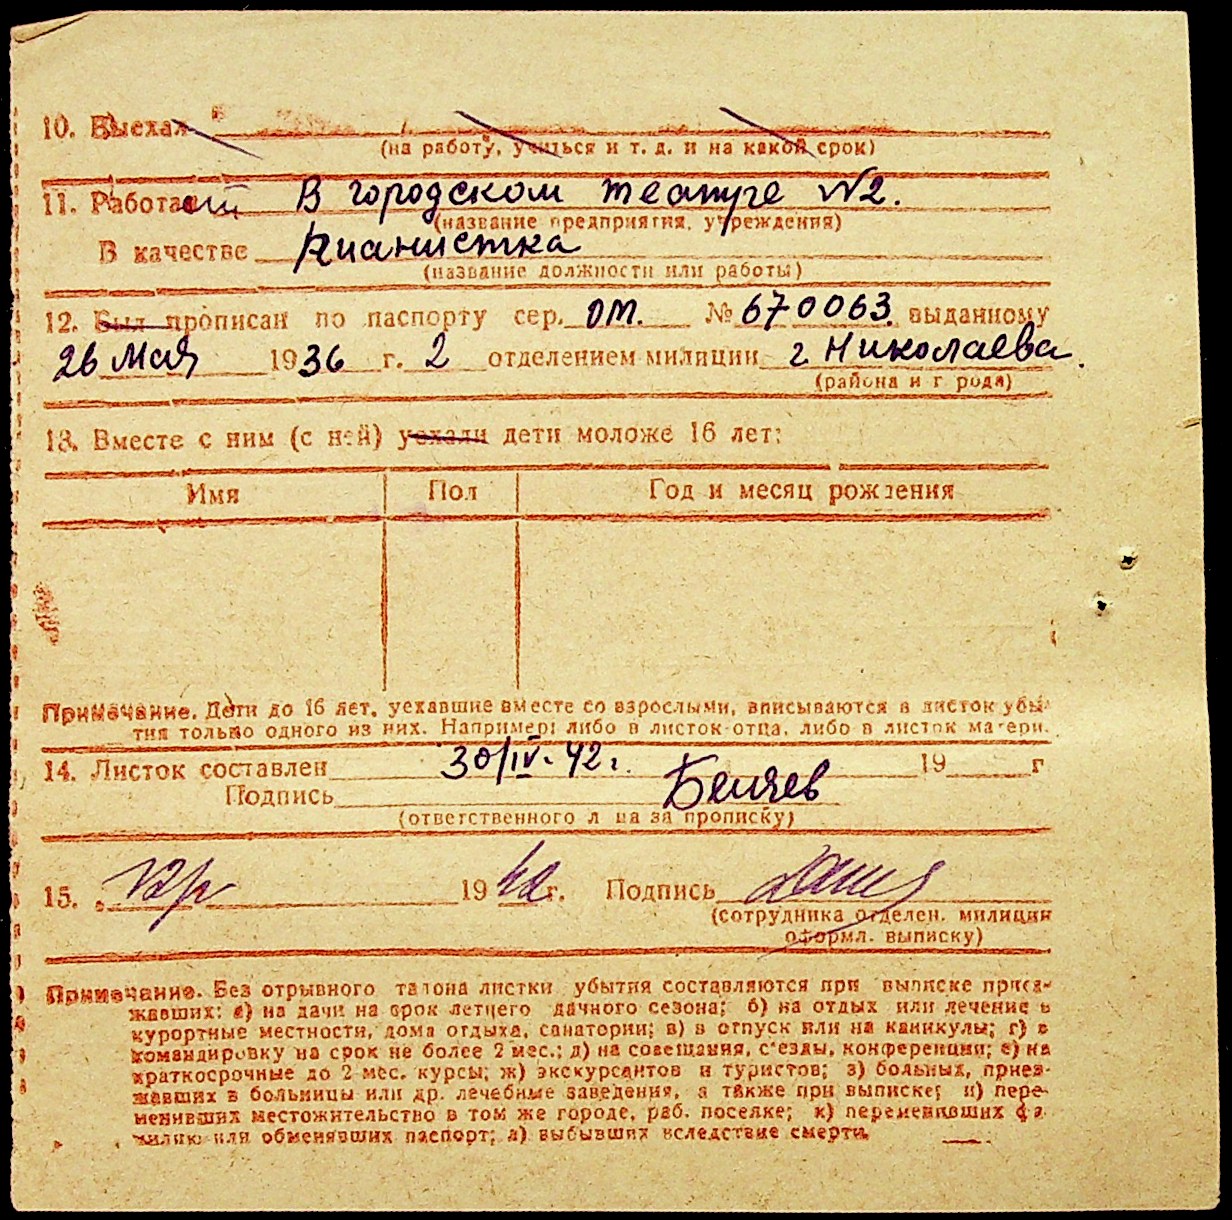 10. Выехал
(на работу, учиться и т. д. и на какой срок)
11. Работает В городском театре №2.
(название предприятия, учреждения)
В качестве Пианистка
(название должности или работы)
12. Был прописан по паспорту сер. ОМ. № 670063 выданному
26 Мая 1936 г. 2 отделением милиции г. Николаева.
(района и города)
13. Вместе с ним (с ней) уехали дети моложе 16 лет:
Имя Пол Год и месяц рождения
Примечание. Дети до 16 лет, уехавшие вместе со взрослыми, вписываются в листок убы-
тия только одного из них. Например: либо в листок отца, либо в листок матери.
14. Листок составлен 30/IV-42 г. 19 г
Подпись
(ответственного лица за прописку)
15. 1942 г. Подпись
(сотрудника отделен. милиции
оформл. выписку)
Примечание. Без отрывного талона листки убытия составляются при выписке приез-
жавших: а) на дачи на срок летнего дачного сезона; б) на отдых или лечение в
курортные местности, дома отдыха, санатории; в) в отпуск или на каникулы; г) в
командировку на срок не более 2 мес.; д) на совещания, с'езды, конференции; е) на
краткосрочные до 2 мес. курсы; ж) экскурсантов и туристов; з) больных, приез-
жавших в больницы или др. лечебные заведения, а также при выписке; и) пере-
менивших местожительство в том же городе, раб. поселке; к) переменивших фа-
милию или обменявших паспорт; л) выбывших вследствие смерти.